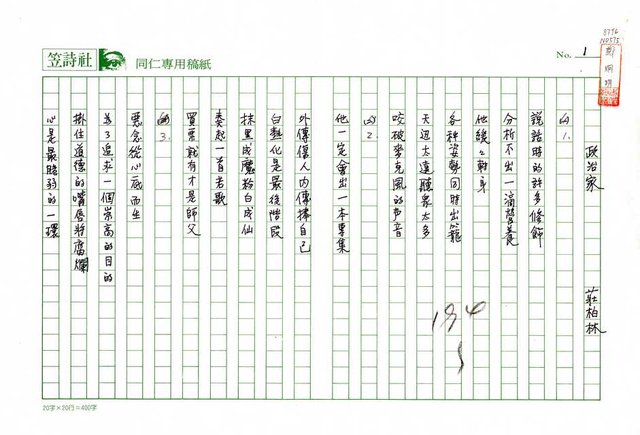 笠詩社
同仁專用稿紙
No. 1
政治家
莊柏林
1.
說話時的許多修飾
分析不出一滴營養
他緩緩轉身
各種姿勢同時出籠
天迢太遠聽衆太多
咬破麥克風的声音
2.
他一定會出一本專集
外傳傷人內傳捧自己
白熱化是最後階段
抹黑成魔粉白成仙
奏起一首老歌
買票就有才是師父
3.
惡念從心底而坐
為了追求一個崇高的目的
掛住道德的嘴唇將腐爛
心是最賭弱的一環
194
20字×20行=400字